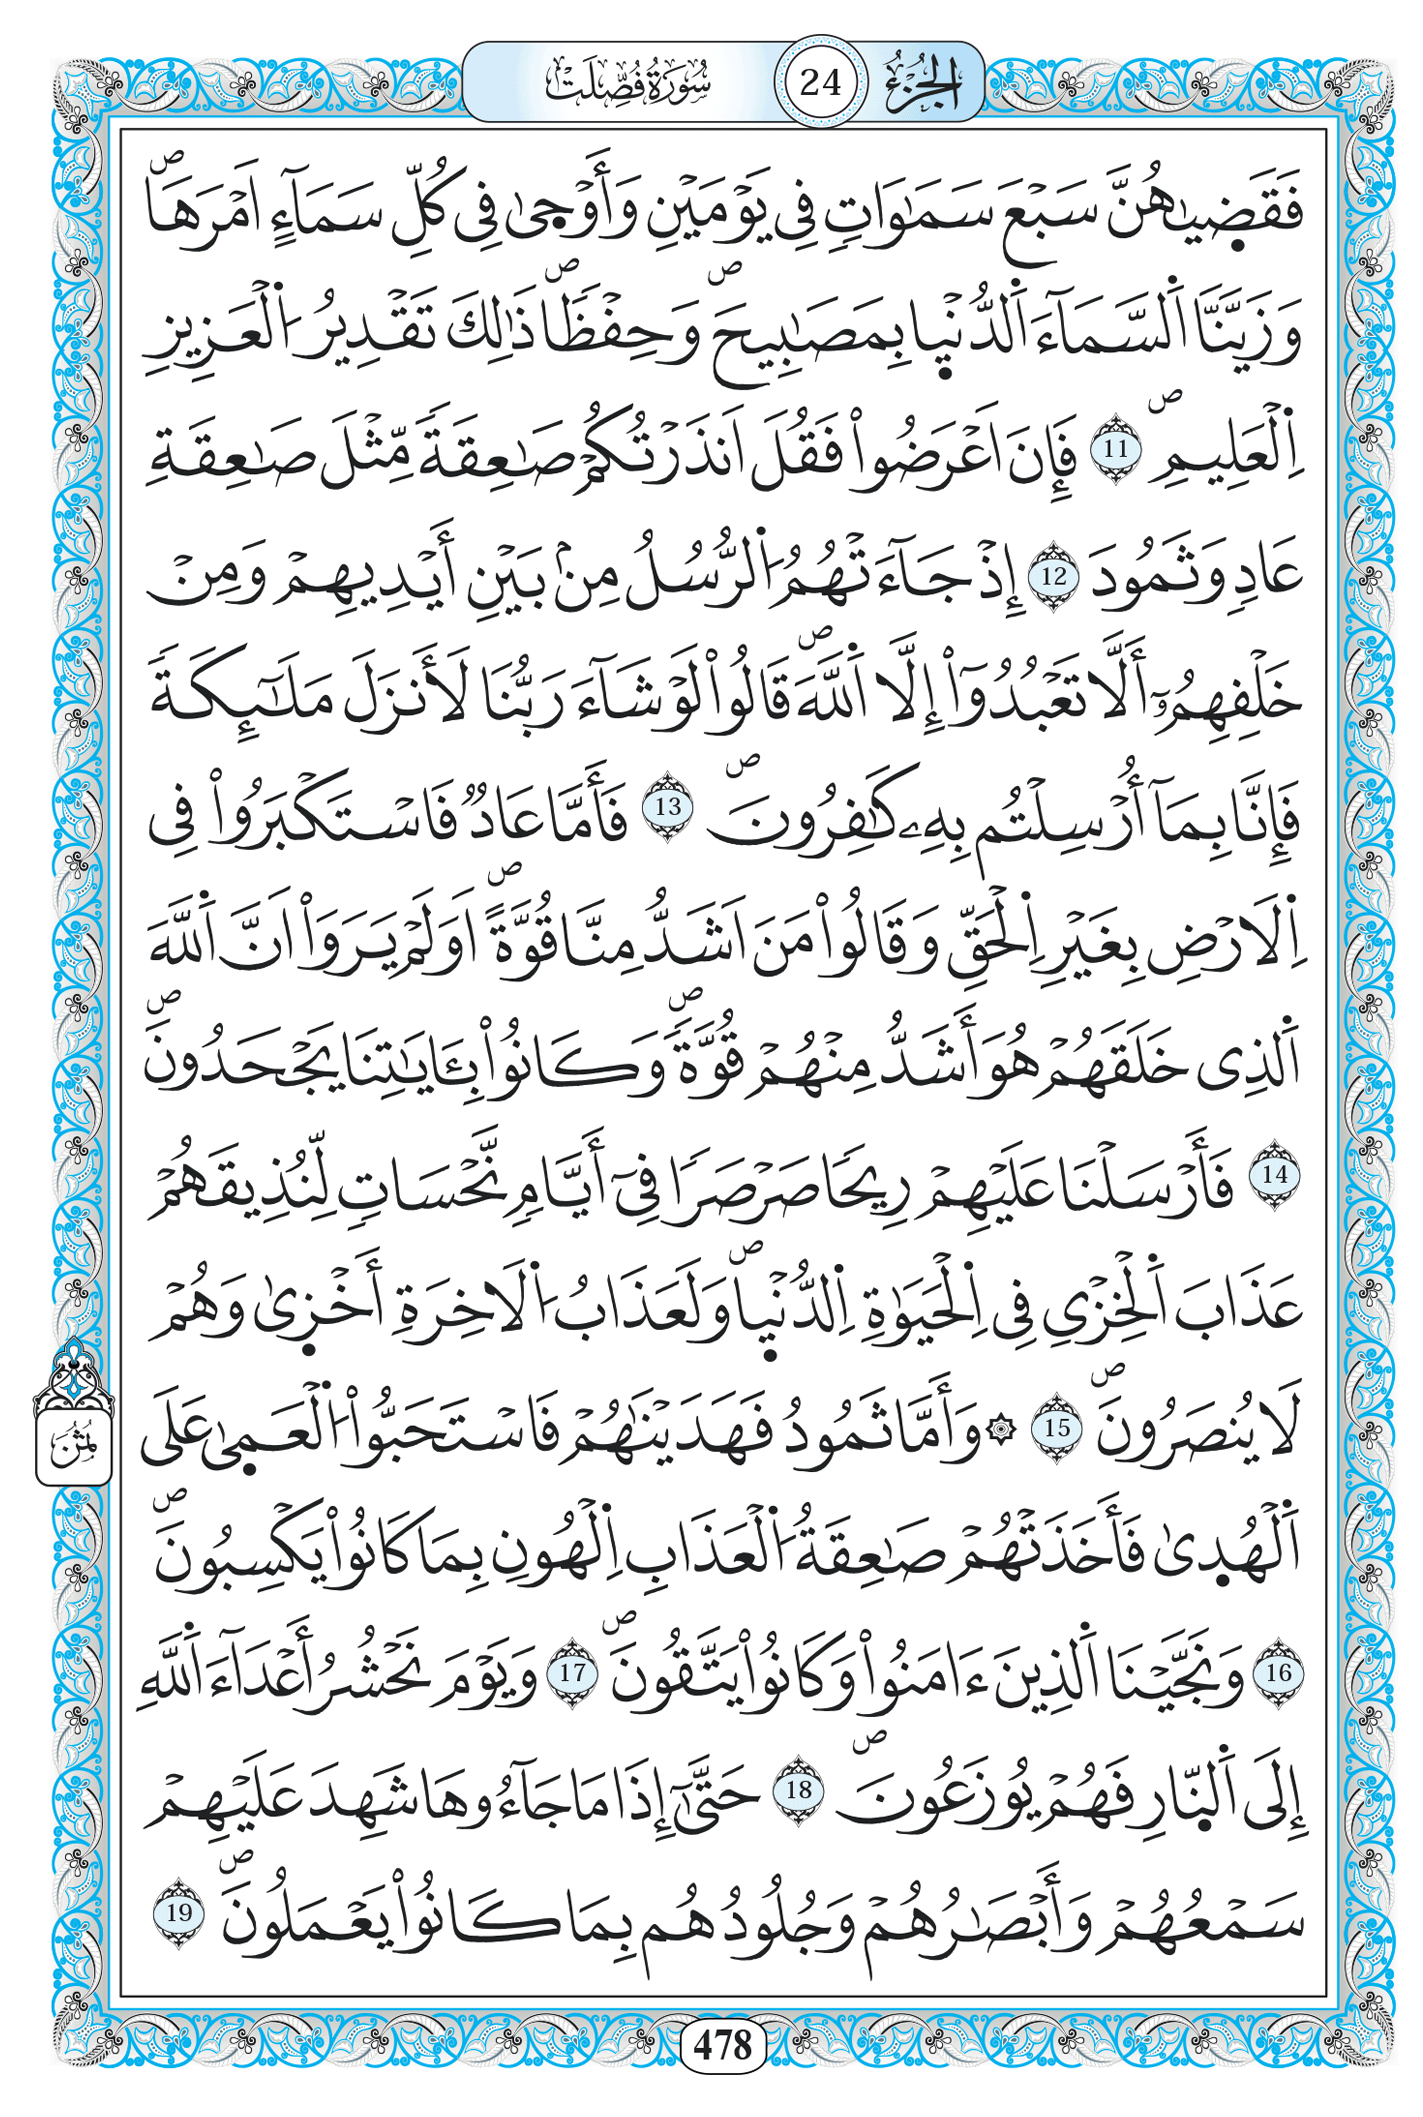 الجزء 24 سورة فصلت
فَقَضۭىٰهُنَّ سَبْعَ سَمَٰوَاتٍ فِي يَوْمَيْنِ وَأَوْحۭىٰ فِي كُلِّ سَمَآءٍ اَمْرَهَاۖ
وَزَيَّنَّا اَ۬لسَّمَآءَ اَ۬لدُّنْيۭا بِمَصَٰبِيحَۖ وَحِفْظاٗۖ ذَٰلِكَ تَقْدِيرُ اُ۬لْعَزِيزِ
اِ۬لْعَلِيمِۖ 11 فَإِنَ اَعْرَضُواْ فَقُلَ اَنذَرْتُكُمْ صَٰعِقَةٗ مِّثْلَ صَٰعِقَةِ
عَادٖ وَثَمُودَ 12 إِذْ جَآءَتْهُمُ اُ۬لرُّسُلُ مِنۢ بَيْنِ أَيْدِيهِمْ وَمِنْ
خَلْفِهِمُۥٓ أَلَّا تَعْبُدُوٓاْ إِلَّا اَ۬للَّهَۖ قَالُواْ لَوْ شَآءَ رَبُّنَا لَأَنزَلَ مَلَٰٓئِكَةٗ
فَإِنَّا بِمَآ أُرْسِلْتُم بِهِۦ كَٰفِرُونَۖ 13 فَأَمَّا عَادٞ فَاسْتَكْبَرُواْ فِي
اِ۬لَارْضِ بِغَيْرِ اِ۬لْحَقِّ وَقَالُواْ مَنَ اَشَدُّ مِنَّا قُوَّةًۖ اَوَلَمْ يَرَوَاْ اَنَّ اَ۬للَّهَ
اَ۬لذِي خَلَقَهُمْ هُوَ أَشَدُّ مِنْهُمْ قُوَّةٗۖ وَكَانُواْ بِـَٔايَٰتِنَا يَجْحَدُونَۖ
14 فَأَرْسَلْنَا عَلَيْهِمْ رِيحاٗ صَرْصَراٗ فِيٓ أَيَّامٖ نَّحْسَاتٖ لِّنُذِيقَهُمْ
عَذَابَ اَ۬لْخِزْيِ فِي اِ۬لْحَيَوٰةِ اِ۬لدُّنْيۭاۖ وَلَعَذَابُ اُ۬لَاخِرَةِ أَخْزۭىٰ وَهُمْ
لَا يُنصَرُونَۖ 15 ۞ وَأَمَّا ثَمُودُ فَهَدَيْنَٰهُمْ فَاسْتَحَبُّواْ اُ۬لْعَمۭىٰ عَلَى
اَ۬لْهُدۭىٰ فَأَخَذَتْهُمْ صَٰعِقَةُ اُ۬لْعَذَابِ اِ۬لْهُونِ بِمَا كَانُواْ يَكْسِبُونَۖ
16 وَنَجَّيْنَا اَ۬لذِينَ ءَامَنُواْ وَكَانُواْ يَتَّقُونَۖ 17 وَيَوْمَ نَحْشُرُ أَعْدَآءَ اَ۬للَّهِ
إِلَى اَ۬لنّۭارِ فَهُمْ يُوزَعُونَۖ 18 حَتَّىٰٓ إِذَا مَا جَآءُوهَا شَهِدَ عَلَيْهِمْ
سَمْعُهُمْ وَأَبْصَٰرُهُمْ وَجُلُودُهُم بِمَا كَانُواْ يَعْمَلُونَۖ 19
ثُمُنُ
478